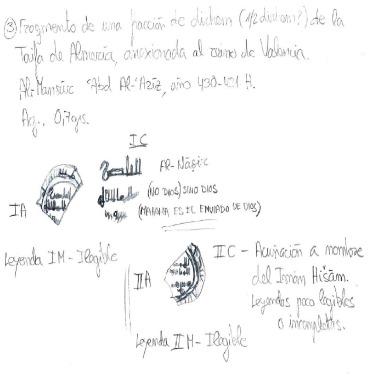 ③ Fragmento de una fracción de dirham (1/2 dirham?) de la
Taifa de Almería, anexionada al reino de Valencia.
Al-Mansūr 'Abd Al-'Azīz, año 430-421 H.
Ag., 0,7grs.
IC
Al-Nāṣir
(NO DIOS) SINO DIOS
IA
(MAHOMA ES EL ENVIADO DE DIOS)
Leyenda IM - Ilegible
IIC - Acuñación a nombre
IIA
del Imām Hišām.
Leyendas poco legibles
o incompletas.
Leyenda IIM - Ilegible